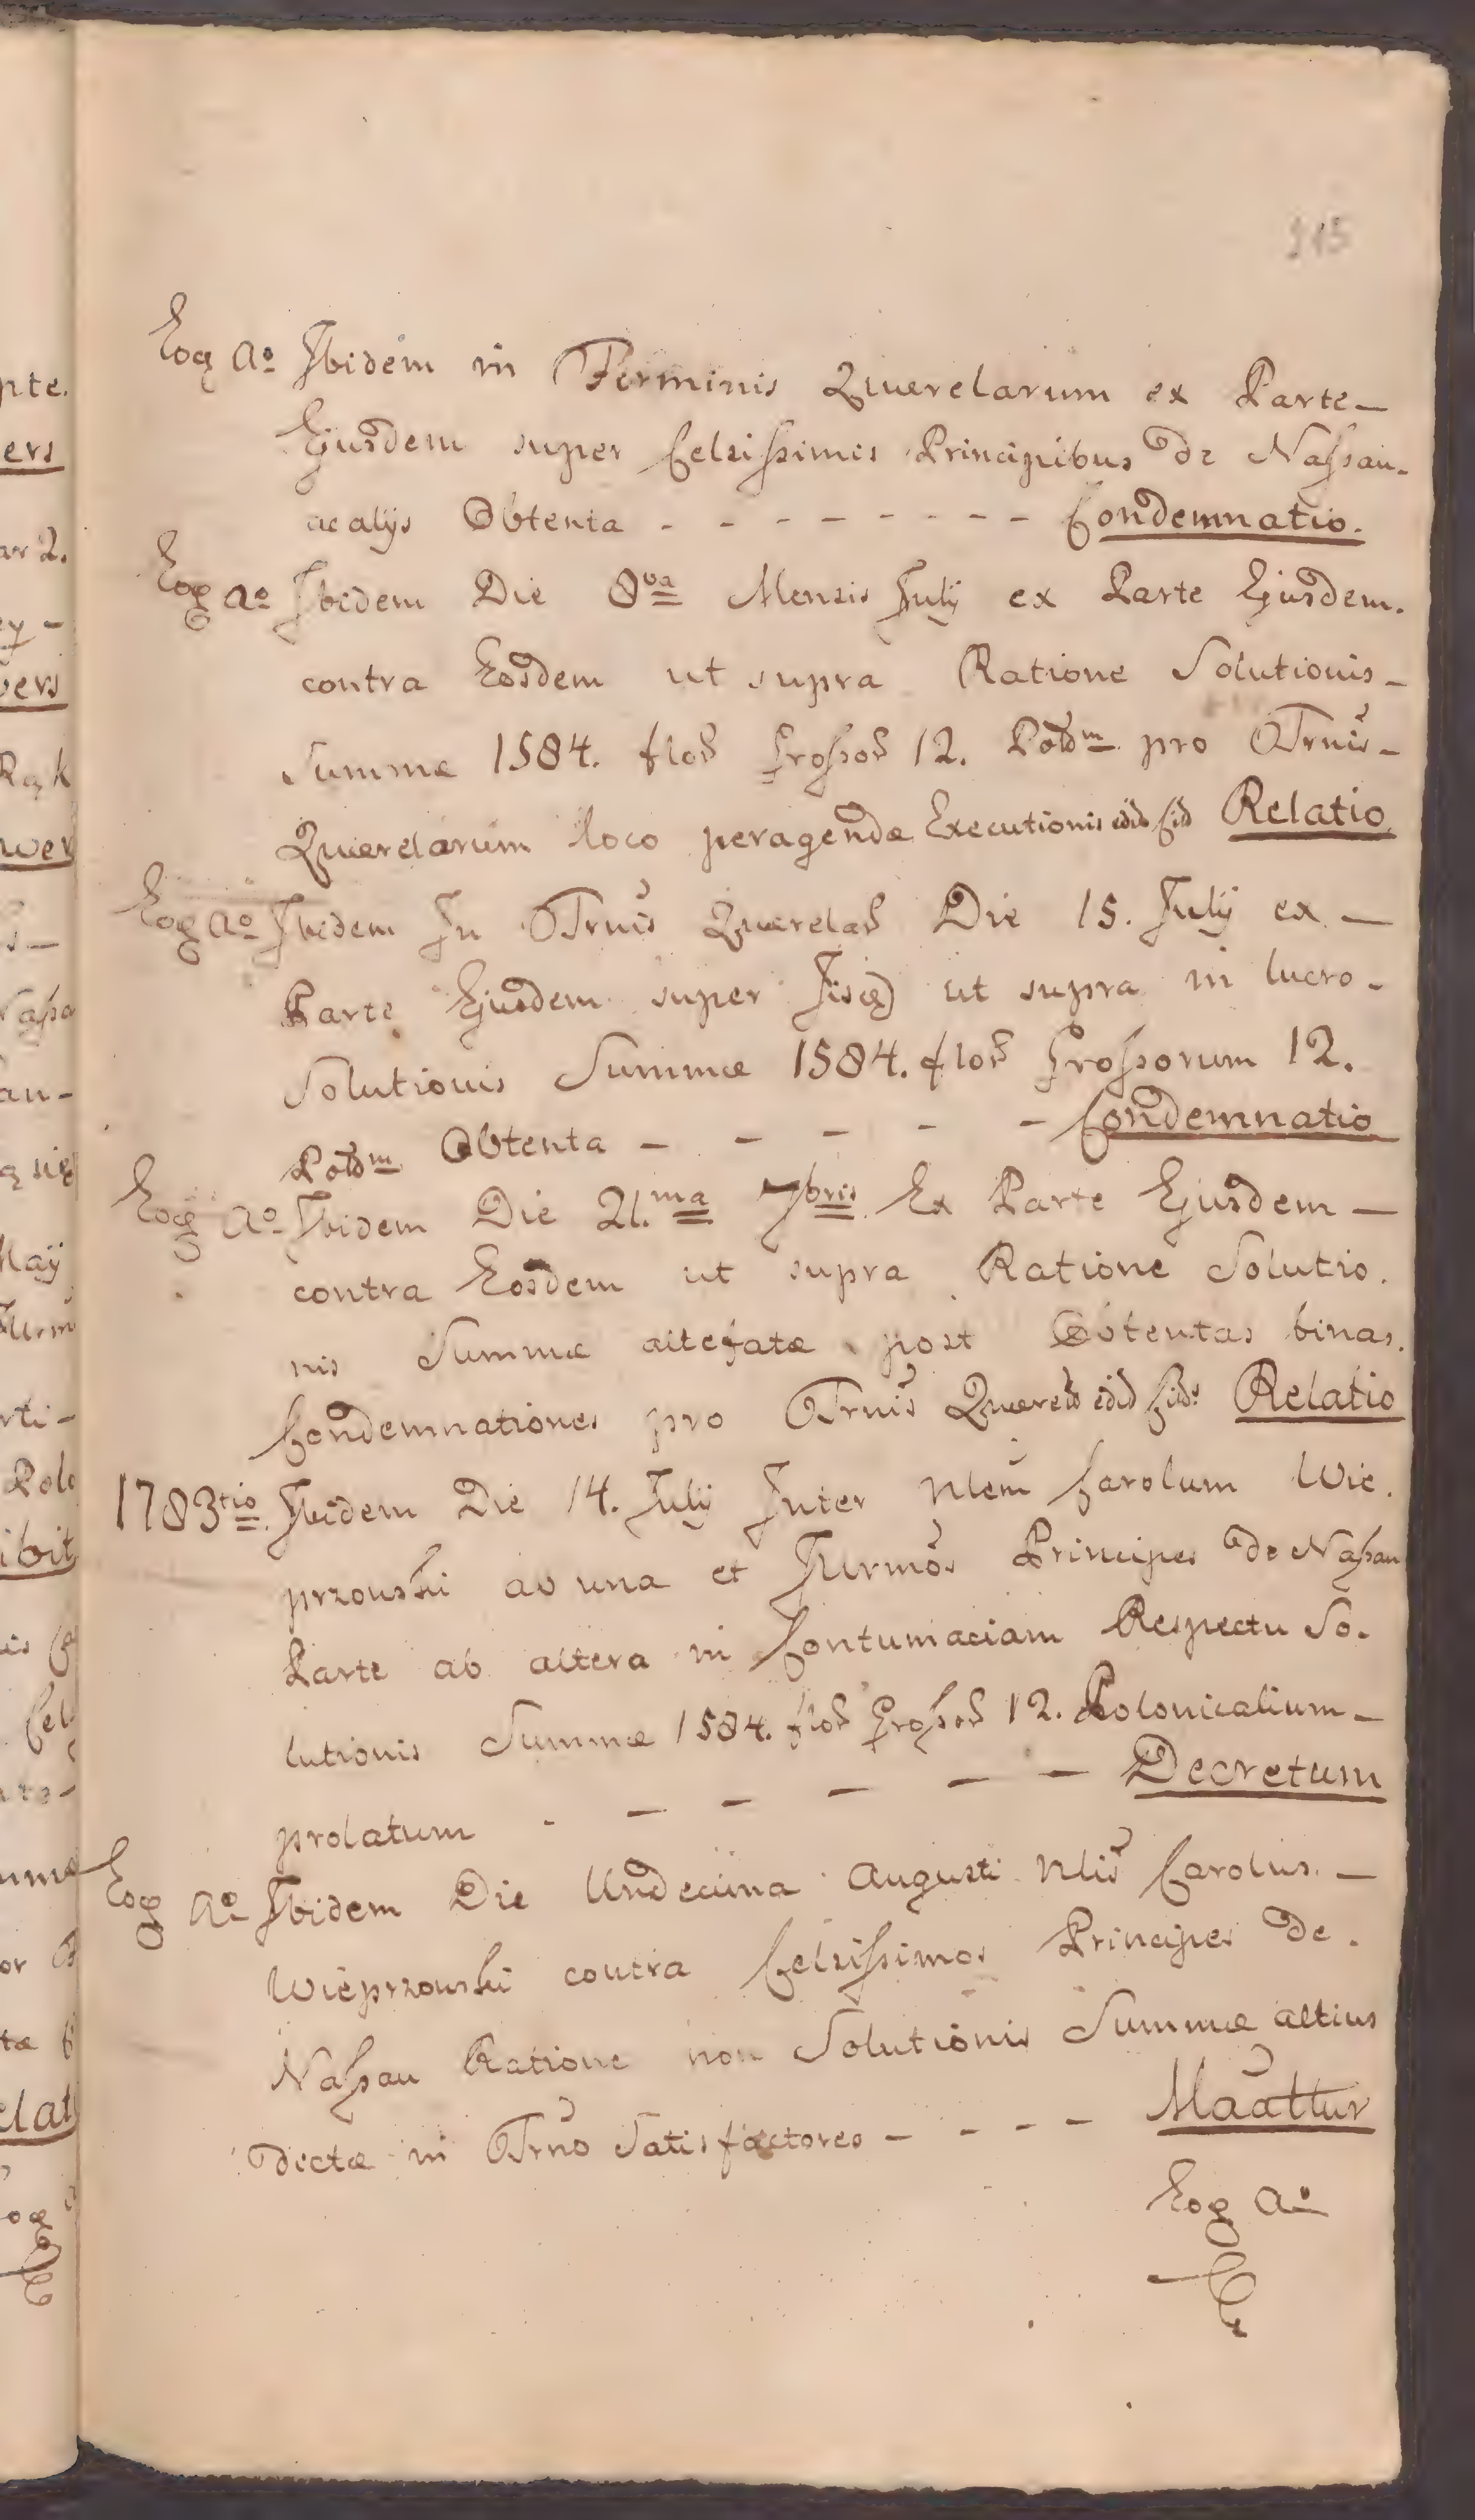 115
Eoq̃ Ao Ibidem in Terminis Querelarum ex Parte –
Ejusdem super Celsissimis Principibus de Nassau –
ac alijs Obtenta - - - - - - - - - Condemnatio.
Eoq̃ Ao Ibidem Die 8va Mensis July ex Parte Ejusdem.
contra Eosdem ut supra Ratione Solutionis –
Summæ 1584. flor̃ Grossor̃ 12. Polm pro Trnis –
Querelarum loco peragendæ Executionis Relatio
Eoq̃ Ao Ibidem In Trnis Querelar̃ Die 15. July ex –
Parte Ejusdem super Iisdẽ ut supra in lucro –
Solutionis Summæ 1584. flor̃ Grossorum 12.
Polm Obtenta – – – – – Condemnatio
Eoq̃ Ao Ibidem Die 21.ma 7bris Ex Parte Ejusdem –
contra Eosdem ut supra Ratione Solutio.
nis Summæ altefatæ post Obtentas binas.
Condemnationes pro Trnis Querelr̃ Relatio
1783tio Ibidem Die 14. July Inter Nlem Carolum Wie.
przowski ab una et Illrmos Principes de Nassau
Parte ab altera in Contumaciam Respectu So.
lutionis Summæ 1584. flor̃ Grossor̃ 12. Polonicalium –
prolatum - – – – – – Decretum
Eoq̃ Ao Ibidem Die Undecima Augusti Nlis Carolus –
Wieprzowski contra Celsissimos Principes de.
Nassau Ratione non Solutionis Summæ altius
dictæ in Trno Satisfactoreo – - - – Maãttur
Eoq̃ Ao